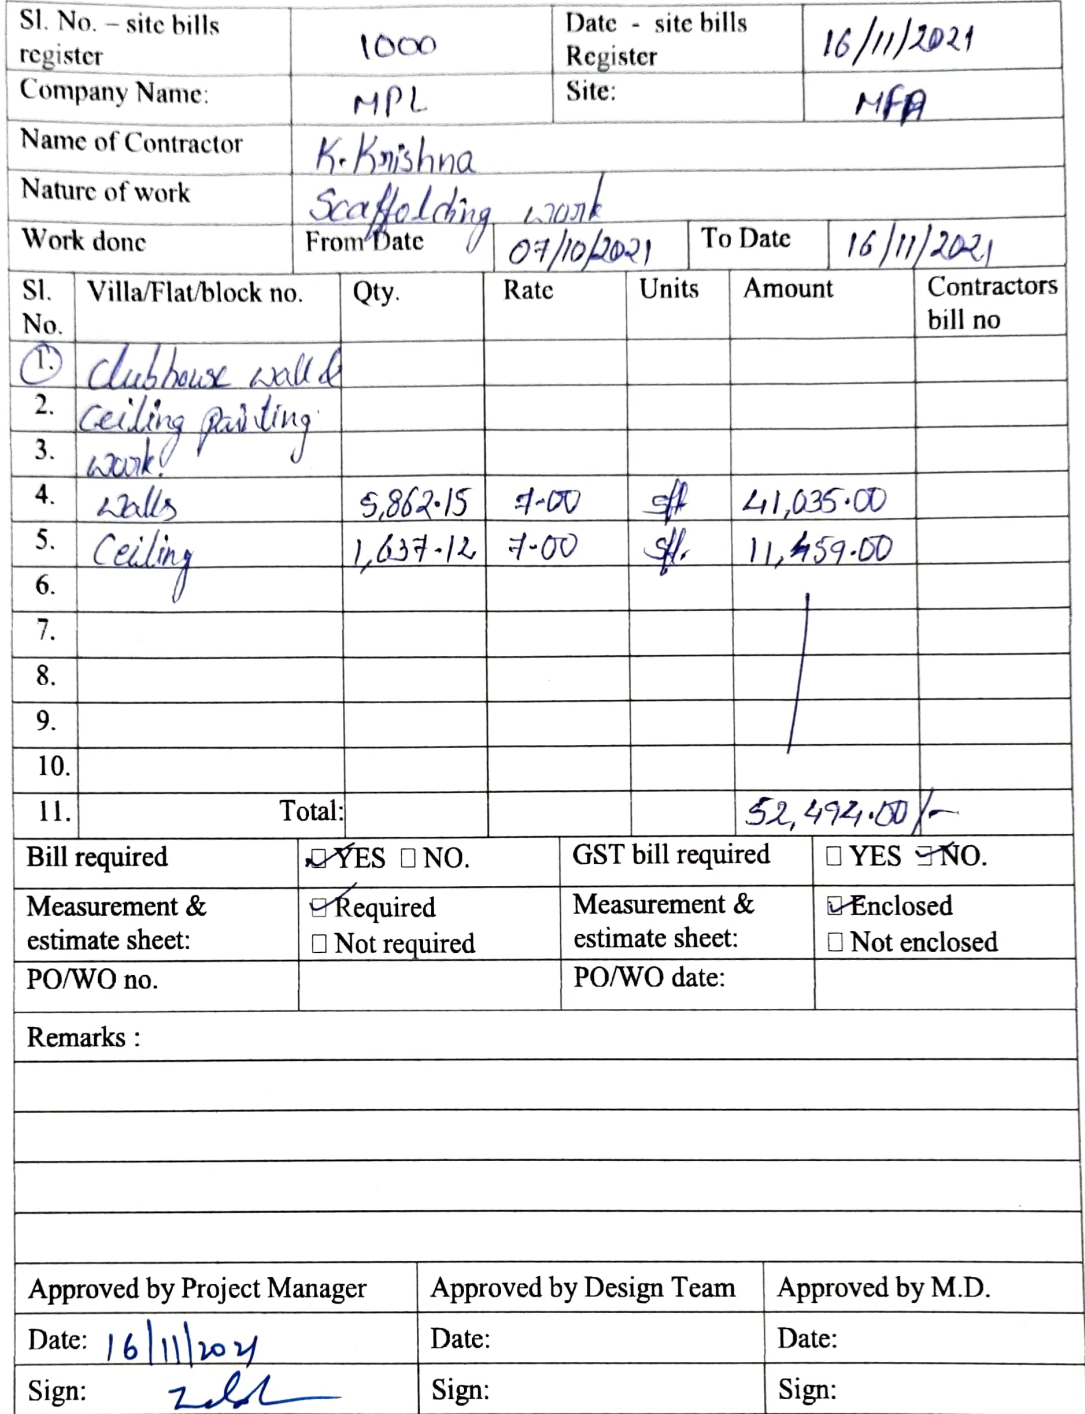 Sl. No. – site bills register 1000 Date - site bills Register 16/11/2021
Company Name: MPL Site: MFA
Name of Contractor K. Krishna
Nature of work Scaffolding work
Work done From Date 07/10/2021 To Date 16/11/2021
Sl. No. Villa/Flat/block no. Qty. Rate Units Amount Contractors bill no
1. Clubhouse wall &
2. Ceiling painting
3. work.
4. Walls 5,862.15 7-00 sft 41,035.00
5. Ceiling 1,637.12 7-00 sft. 11,459.00
6.
7.
8.
9.
10.
11. Total: 52,494.00/-
Bill required YES NO. GST bill required YES NO.
Measurement & estimate sheet: Required Not required Measurement & estimate sheet: Enclosed Not enclosed
PO/WO no. PO/WO date:
Remarks :
Approved by Project Manager Approved by Design Team Approved by M.D.
Date: 16/11/2021 Date: Date:
Sign: Sign: Sign: